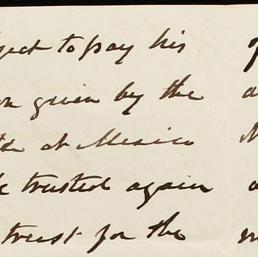 to pay his
given by the
at Mexico
trusted again
trust for the